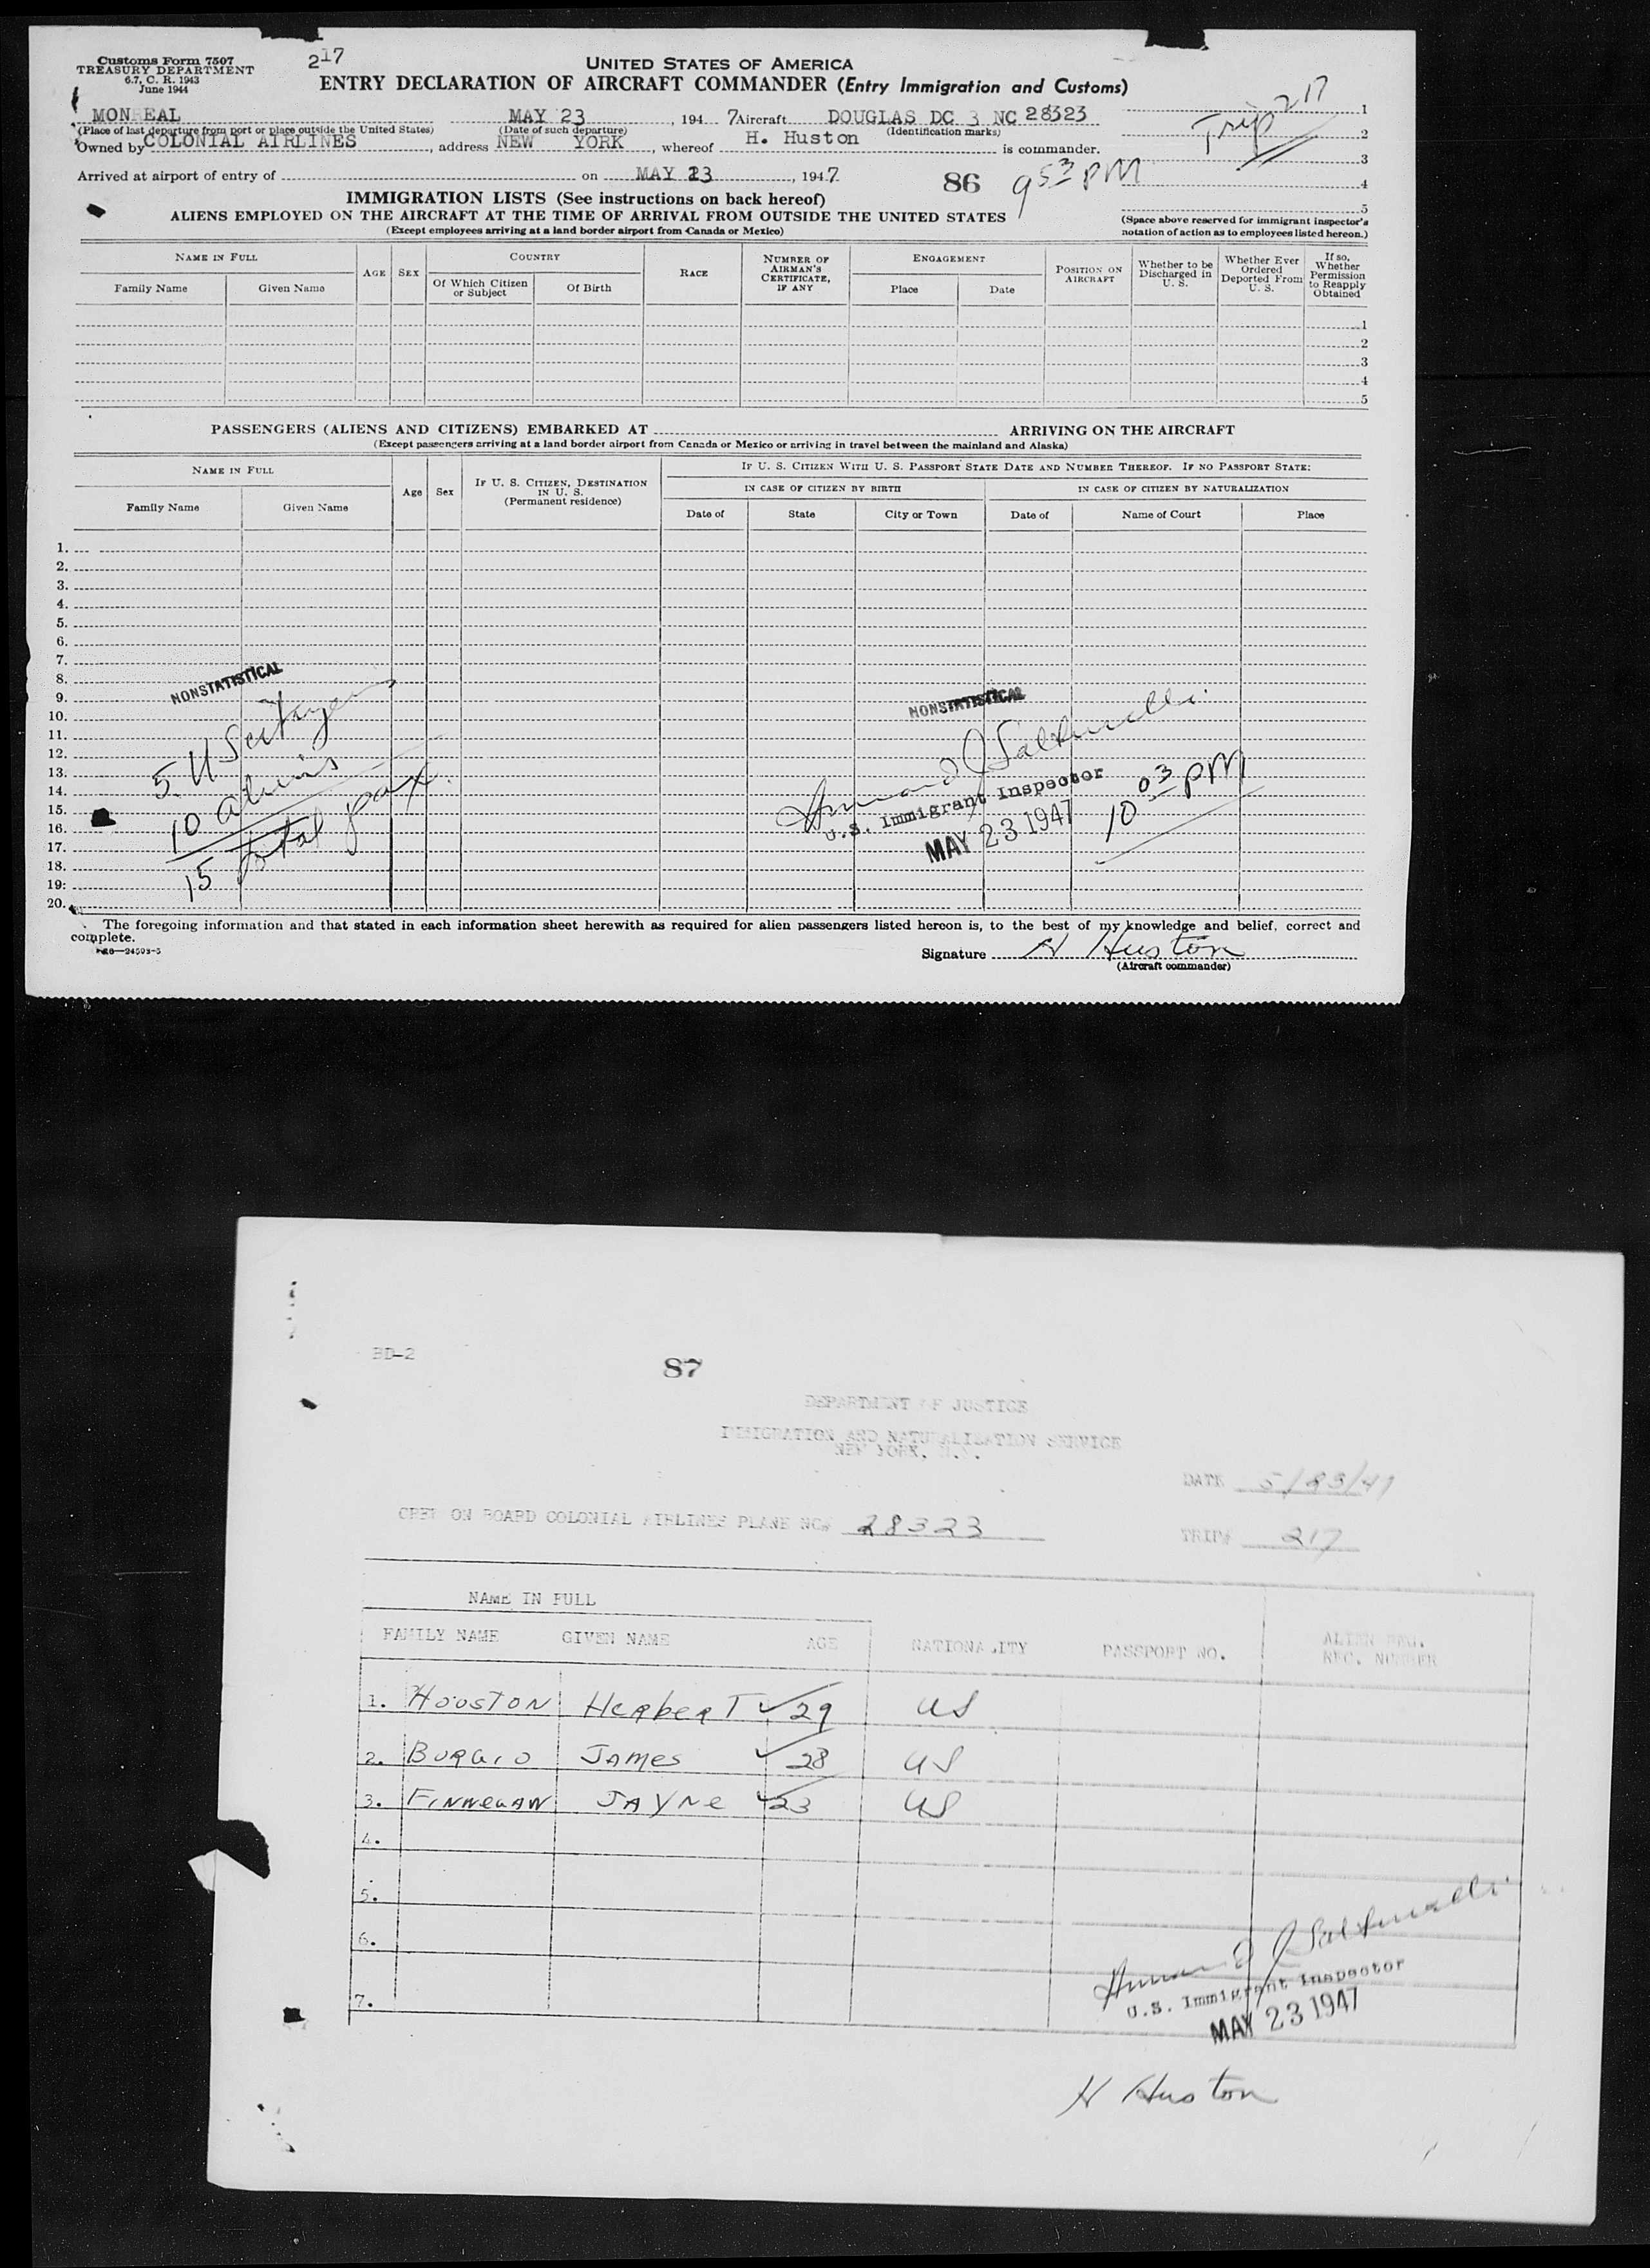 Customs Form 7507
TREASURY DEPARTMENT
6.7, C. R. 1943
June 1944
217
UNITED STATES OF AMERICA
ENTRY DECLARATION OF AIRCRAFT COMMANDER (Entry Immigration and Customs)
MON EAL MAY 23, 194 7 Aircraft DOUGLAS DC 3 NC 28323
(Place of last departure from port or place outside the United States) (Date of such departure) (Identification marks)
Owned by COLONIAL AIRLINES, address NEW YORK, whereof H. Huston is commander.
Arrived at airport of entry of on MAY 23, 194 7
86 9 53 PM
Trip 217
1
2
3
4
5
(Space above reserved for immigrant inspector's notation of action as to employees listed hereon.)
IMMIGRATION LISTS (See instructions on back hereof)
ALIENS EMPLOYED ON THE AIRCRAFT AT THE TIME OF ARRIVAL FROM OUTSIDE THE UNITED STATES
(Except employees arriving at a land border airport from Canada or Mexico)
NAME IN FULL
Family Name Given Name
AGE SEX
COUNTRY
Of Which Citizen or Subject Of Birth
RACE
NUMBER OF AIRMAN'S CERTIFICATE, IF ANY
ENGAGEMENT
Place Date
POSITION ON AIRCRAFT
Whether to be Discharged in U. S.
Whether Ever Ordered Deported From U. S.
If so, Whether Permission to Reapply Obtained
1
2
3
4
5
PASSENGERS (ALIENS AND CITIZENS) EMBARKED AT ARRIVING ON THE AIRCRAFT
(Except passengers arriving at a land border airport from Canada or Mexico or arriving in travel between the mainland and Alaska)
NAME IN FULL
Family Name Given Name
Age Sex
IF U. S. CITIZEN, DESTINATION IN U. S. (Permanent residence)
IF U. S. CITIZEN WITH U. S. PASSPORT STATE DATE AND NUMBER THEREOF. IF NO PASSPORT STATE:
IN CASE OF CITIZEN BY BIRTH IN CASE OF CITIZEN BY NATURALIZATION
Date of State City or Town Date of Name of Court Place
1.
2.
3.
4.
5.
6.
7.
8.
9.
10.
11.
12.
13.
14.
15.
16.
17.
18.
19.
20.
NONSTATISTICAL
5 US citizens
10 aliens
15 total pax.
NONSTATISTICAL
U.S. Immigrant Inspector
MAY 23 1947
10 03 PM
The foregoing information and that stated in each information sheet herewith as required for alien passengers listed hereon is, to the best of my knowledge and belief, correct and
complete.
Signature H Huston
(Aircraft commander)
BD-2
87
DEPARTMENT OF JUSTICE
IMMIGRATION AND NATURALIZATION SERVICE
NEW YORK, N.Y.
DATE 5/23/47
CREW ON BOARD COLONIAL AIRLINES PLANE NO# 28323
TRIP# 217
NAME IN FULL
FAMILY NAME GIVEN NAME AGE NATIONALITY PASSPORT NO. ALIEN REG. REC. NUMBER
1. HOOSTON HERBERT 29 US
2. BURGIO JAMES 28 US
3. FINNEGAN JAYNE 23 US
4.
5.
6.
7.
U.S. Immigrant Inspector
MAY 23 1947
H Huston